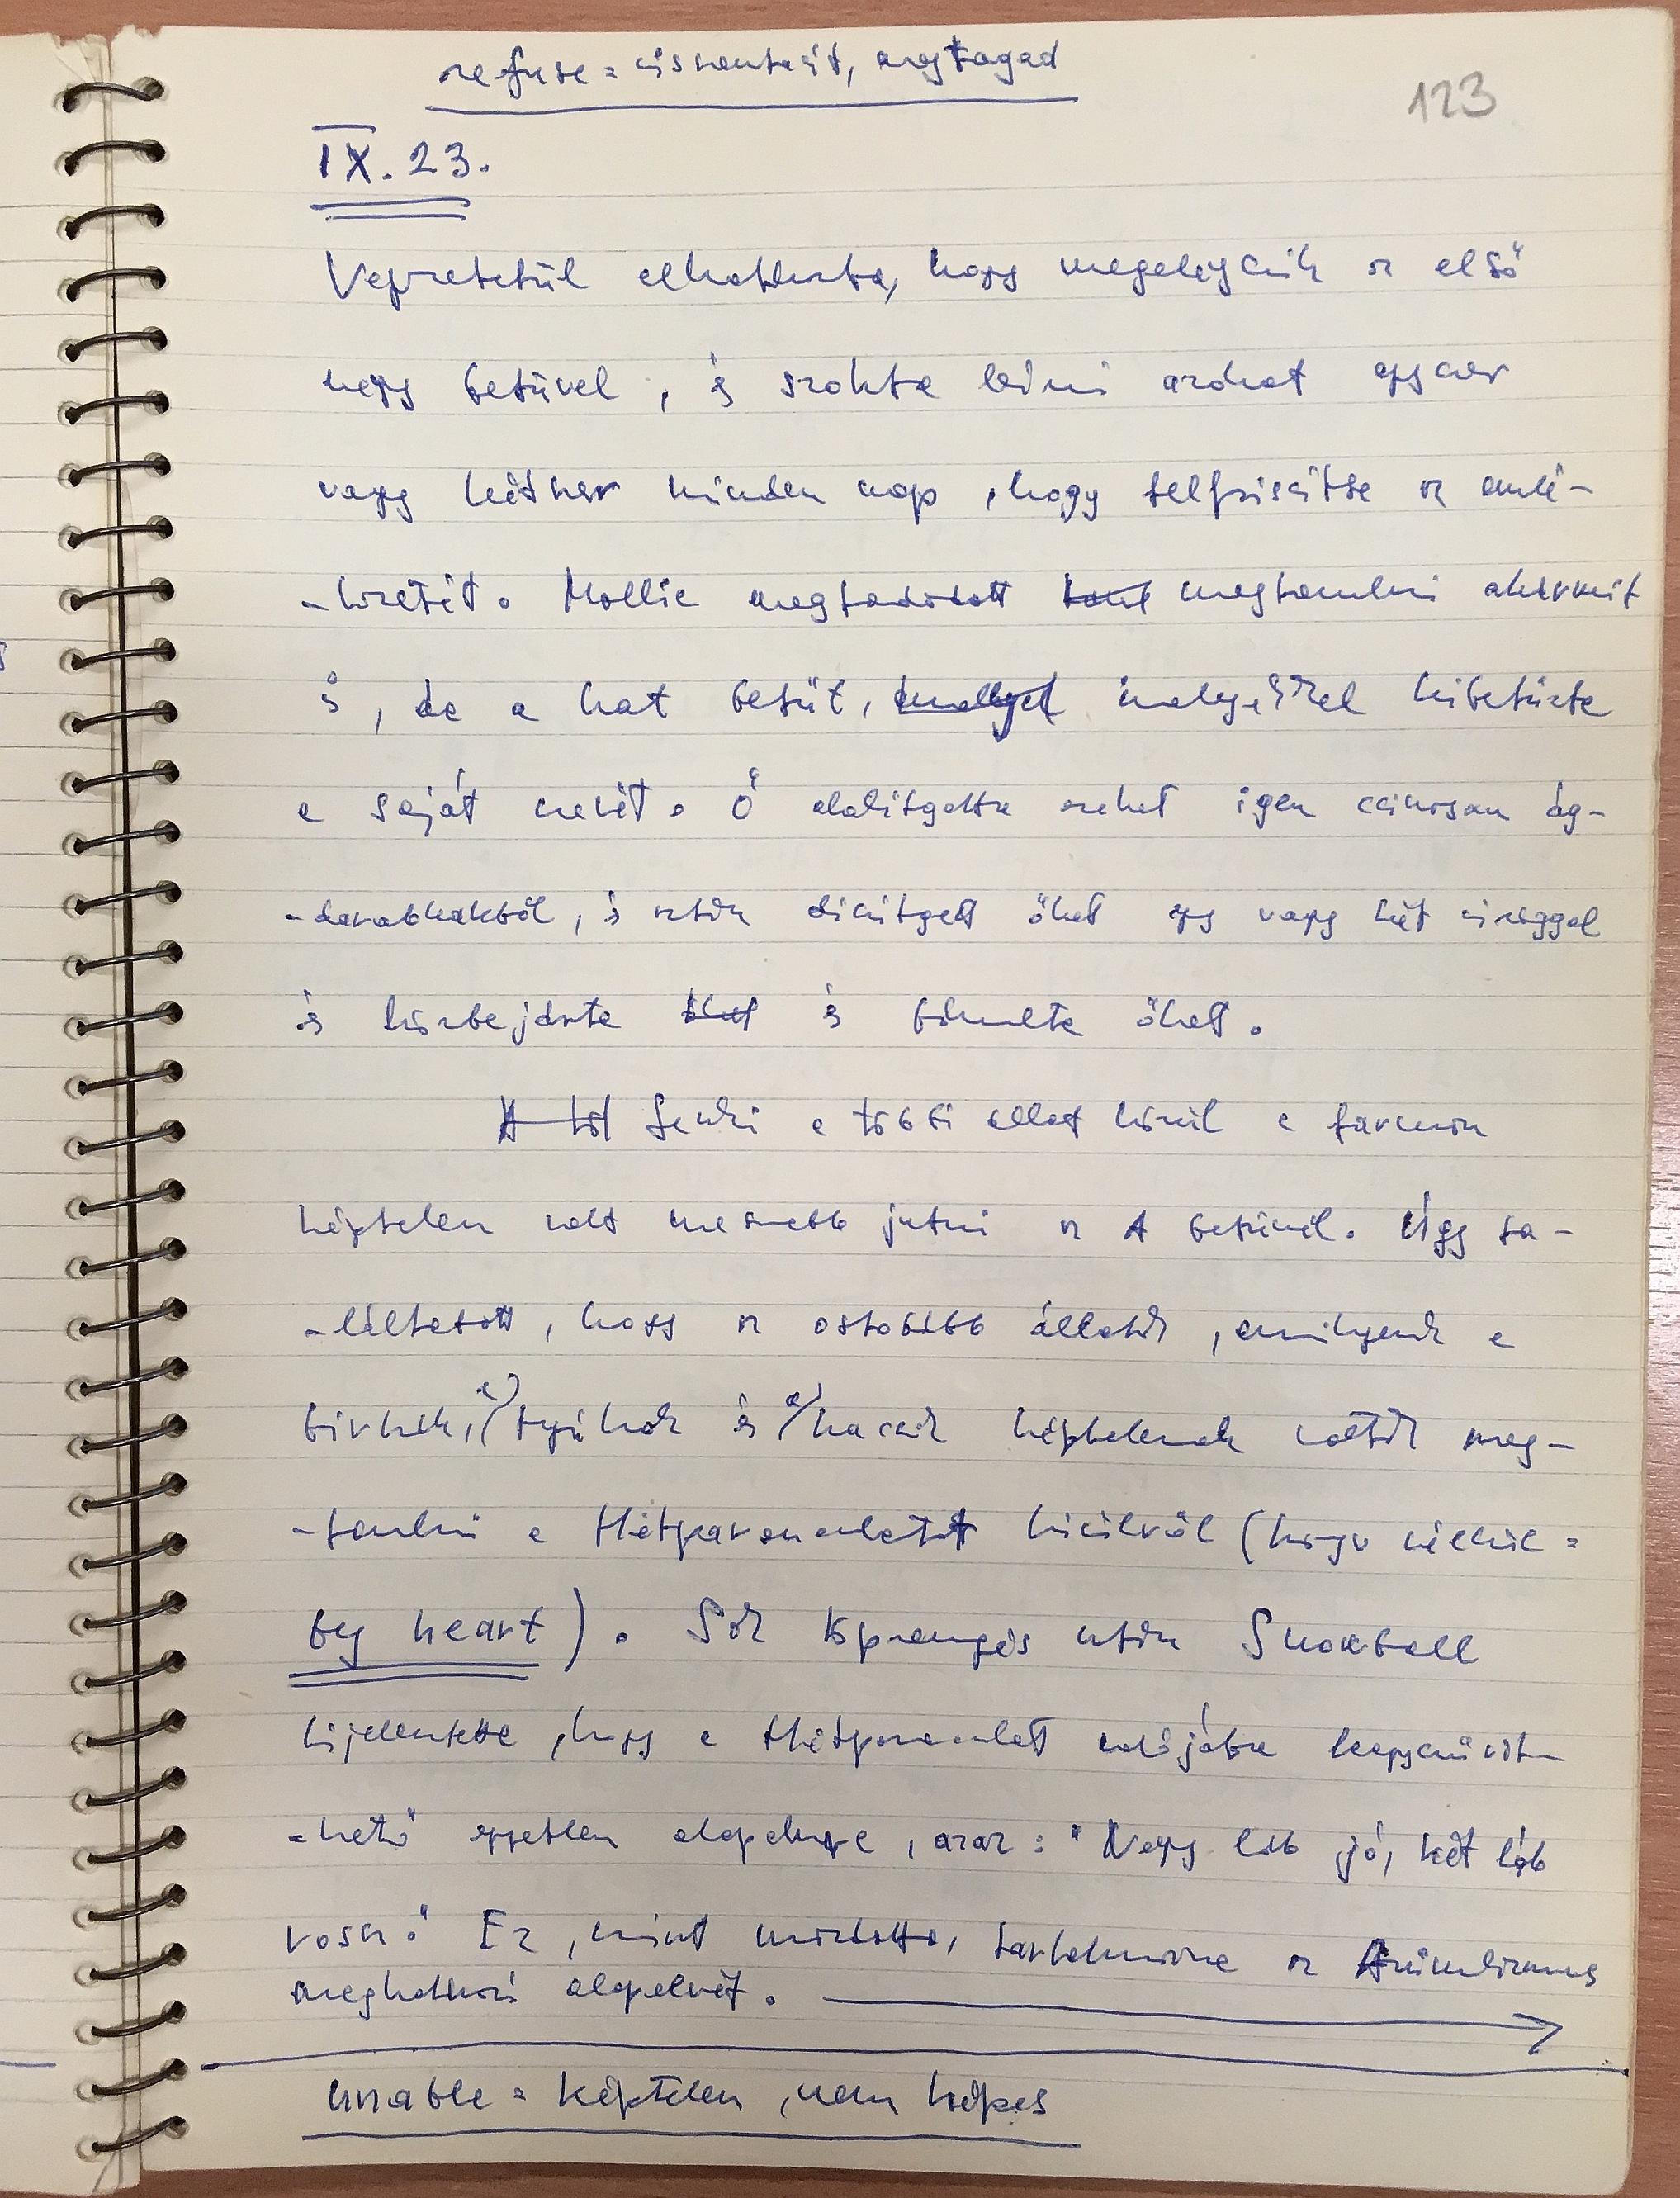 refuse = visszautasít, megtagad
123
IX. 23.
Végezetül elhatározta, hogy megelégszik az első
négy betűvel, és szokta leírni azokat egyszer
vagy kétszer minden nap, hogy felfrissítse az emlé-
-kezetét. Mollie megtagadott tanul megtanulni akármit
is, de a hat betűt, amellyel kibetűzte
a saját nevét. Ő alakítgatta ezeket igen csinosan ág-
-darabkákból, és aztán díszítgett őket egy vagy két virággal
és körbejárta őket és bámulta őket.
A töb Senki a többi állat közül a farmon
képtelen volt messzebb jutni az A betűnél. Úgy ta-
-láltatott, hogy az ostobább állatok, amilyenek a
birkák, a) tyúkok és a) kacsák képtelenek voltak meg-
-tanulni a Hétparancsolatot kívülről (könyv nélkül =
by heart). Sok töprengés után Snowball
kijelentette, hogy a Hétparancsolat valójába leegyszerűsít-
-hető egyetlen alapelvre, azaz: "Négy láb jó, két láb
rossz." Ez, mint mondotta, tartalmazza az Animalizmus
meghatározó alapelvét.
unable = képtelen, nem képes